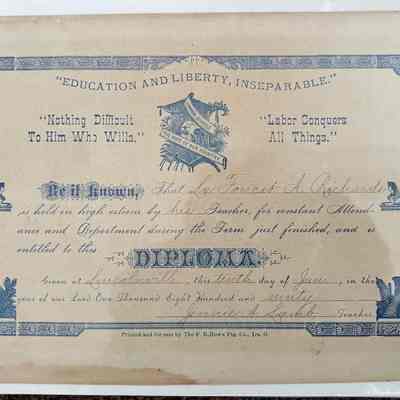 "EDUCATION AND LIBERTY, INSEPARABLE."
"Nothing Difficult
To Him Who Wills."
"Labor Conquers
All Things."
Be it Known, That La Forest A. Richards
is held in high esteem by his Teacher, for constant Attend-
ance and Deportment during the Term just finished, and is
entitled to this
DIPLOMA
Given at Lincolnville this tenth day of June, in the
year of our Lord One Thousand Eight Hundred and ninety
Jennie A. Lamb Teacher
Printed and for sale by The F. B.